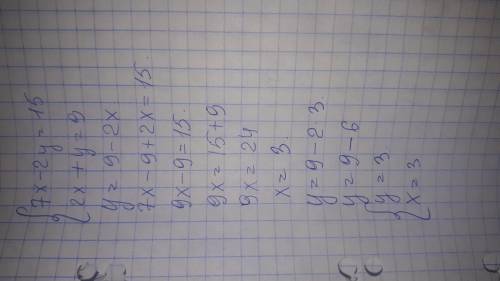 {7x-2y=15
{2x+y=9
y=9-2x
7x-9+2x=15.
9x-9=15.
9x=15+9
9x=24
x=3.
y=9-2·3.
y=9-6
{y=3
{x=3